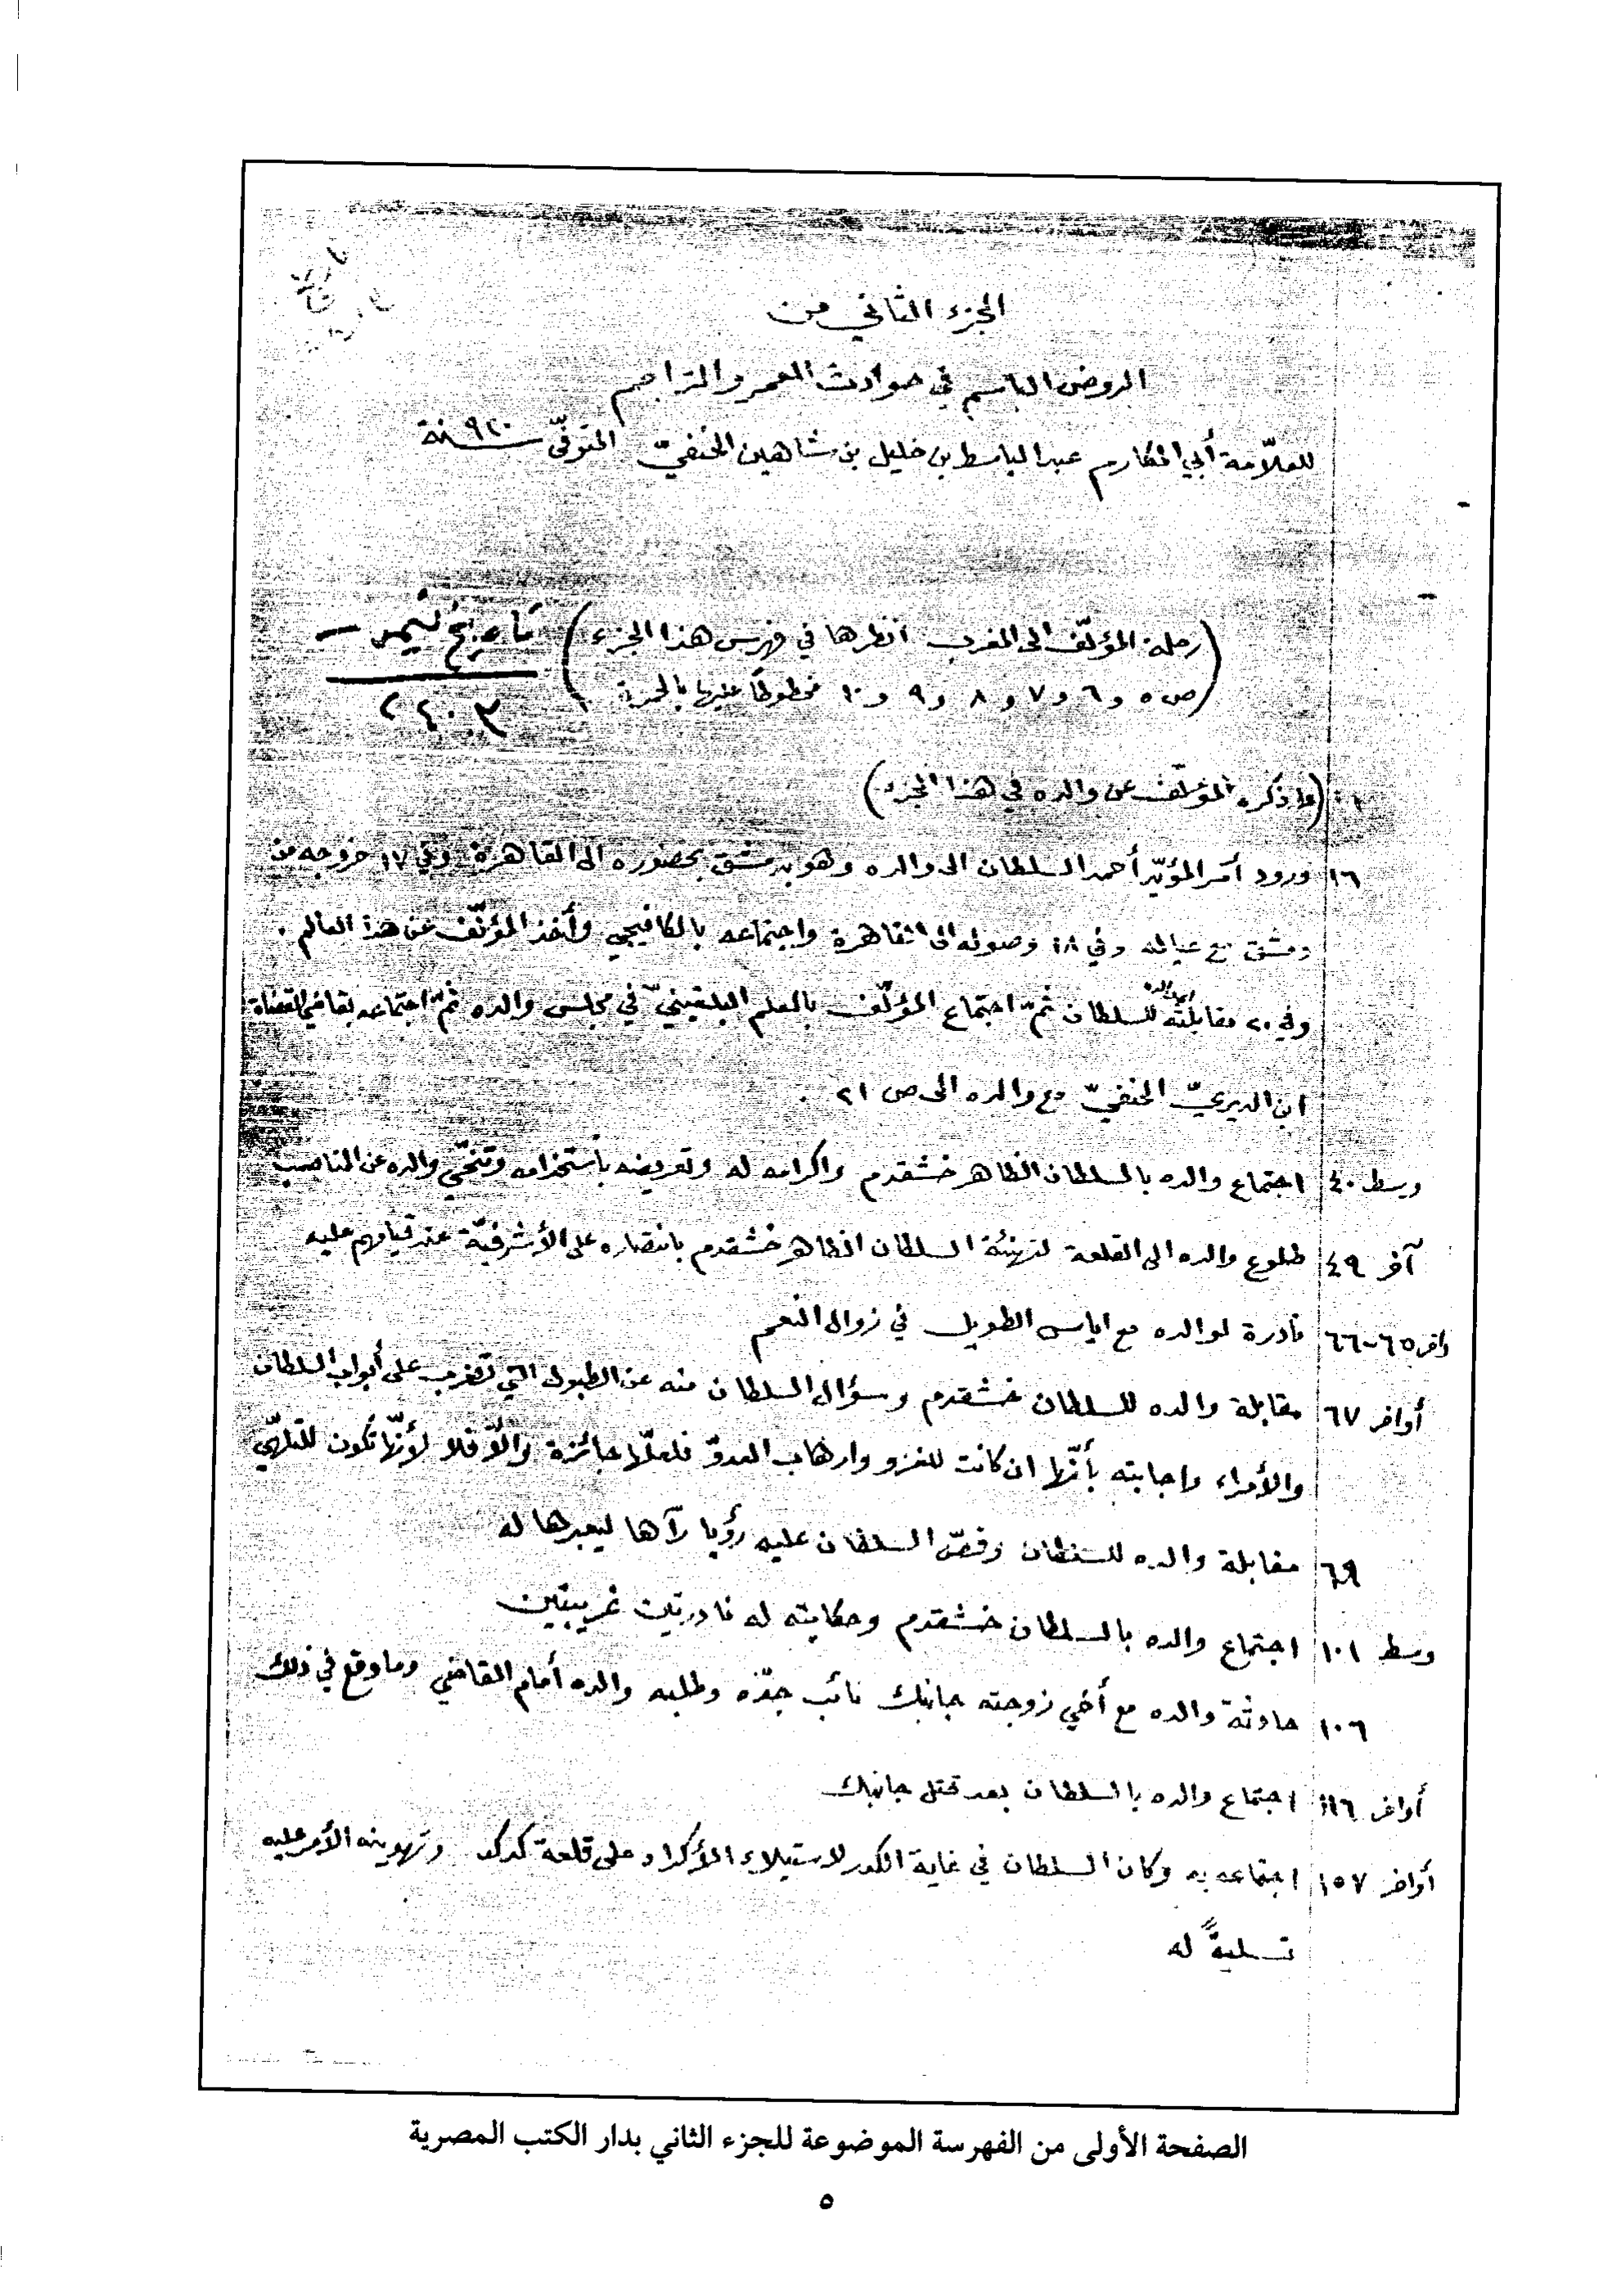 الجزء الثاني من
الروض الباسم في حوادث العمر والتراجم
للعلّامة أبي المكارم عبد الباسط بن خليل بن شاهين الحنفيّ المتوفّى سنة ٩٢٠
(رحلة المؤلّف الى المغرب انظرها في فهرس هذا الجزء
ص ٥ و ٦ و ٧ و ٨ و ٩ و ١٠ مخطوطًا عليها بالحمرة)
تاريخ تيمور
٢٤٠٣
(ما ذكره المؤلّف عن والده في هذا الجزء)
١٦ ورود أمر المؤيّد أحمد السلطان الى والده وهو بدمشق بحضوره الى القاهرة وفي ١٧ خروجه من
دمشق مع عياله وفي ١٨ وصوله الى القاهرة واجتماعه بالكافيجي وأخذ المؤلّف عن هذا العالم.
وفي ٢٠ مقابلته للسلطان ثمّ اجتماع المؤلّف بالعلم البلقينيّ في مجلس والده ثمّ اجتماعه بقاضي القضاة
ابن الديريّ الحنفيّ مع والده الى ص ٢١.
وسط ٤٠ اجتماع والده بالسلطان الظاهر خشقدم واكرامه له وتعريضه باستخدامه وتنحّي والده عن المناصب
آخر ٤٩ طلوع والده الى القلعة لتهنئة السلطان الظاهر خشقدم بانتصاره على الأشرفيّة عند قيامهم عليه
آخر ٦٥-٦٦ نادرة لوالده مع اياس الطويل في زوال النعم
أواخر ٦٧ مقابلة والده للسلطان خشقدم وسؤال السلطان منه عن الطبول التي تضرب على أبواب السلطان
والأمراء واجابته بأنّها ان كانت للغزو وارهاب العدوّ فلعلّها جائزة والّا فلا لأنّها تكون للتلهّي
٦٩ مقابلة والده للسلطان وقصّ السلطان عليه رؤيا رآها ليعبرها له
وسط ١٠١ اجتماع والده بالسلطان خشقدم وحكايته له نادرتين غريبتين
١٠٦ حادثة والده مع أخي زوجته جانبك نائب جدّة وطلبه والده أمام القاضي وما وقع في ذلك
أواخر ١١٦ اجتماع والده بالسلطان بعد قتل جانبك
أواخر ١٥٧ اجتماعه به وكان السلطان في غاية الكدر لاستيلاء الأكراد على قلعة كركر وتهوينه الأمر عليه
تسليةً له
الصفحة الأولى من الفهرسة الموضوعة للجزء الثاني بدار الكتب المصرية
٥